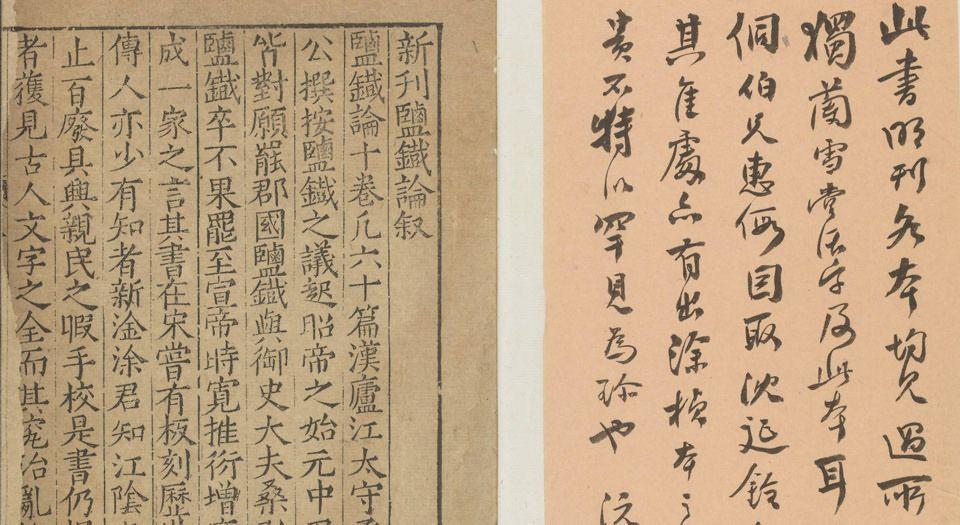 此書明刊各本均見過所
獨蘭雪堂活字及此本耳
侗伯兄惠假因取沈延銓
其佳處亦有出涂楨本之
貴不特以罕見為珍也 沅
新刊鹽鐵論叙
鹽鐵論十卷凡六十篇漢廬江太守
公撰按鹽鐵之議起昭帝之始元中
皆對願罷郡國鹽鐵與御史大夫桑
鹽鐵卒不果罷至宣帝時寬推衍增
成一家之言其書在宋嘗有板刻歷
傳人亦少有知者新淦涂君知江陰
止百廢具興親民之暇手校是書仍
者獲見古人文字之全而其究治亂